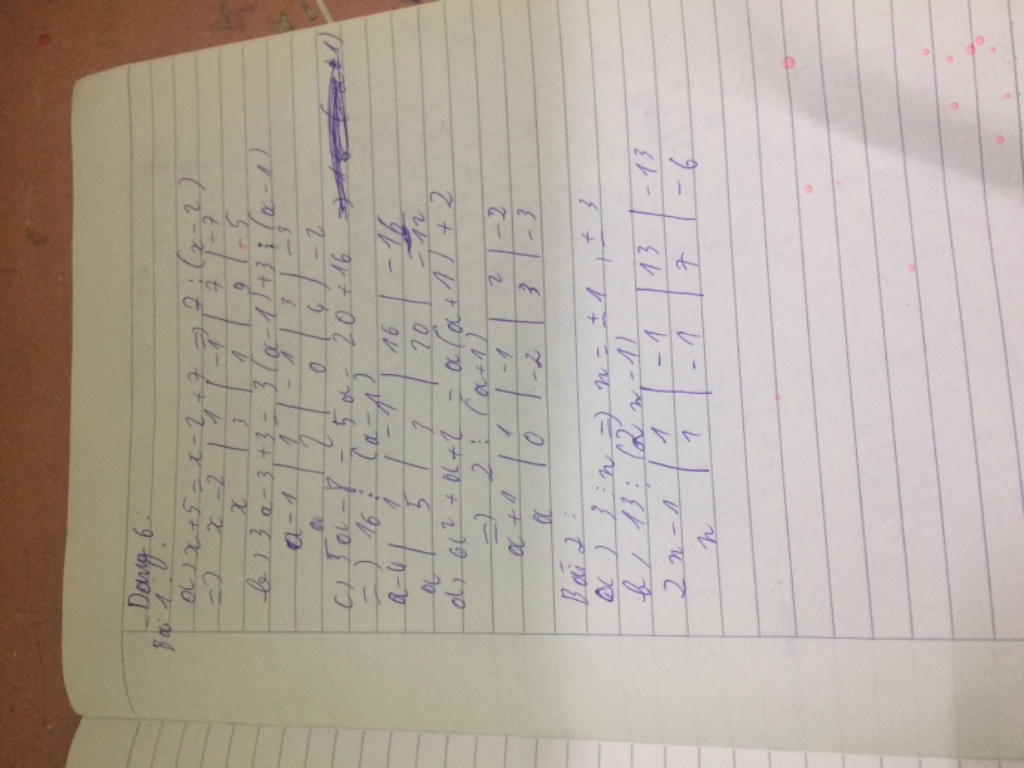 Dạng 6:
Bài 1:
a) x+5 = x-2+7 => 7 ⋮ (x-2)
=> x-2 | 1 | -1 | 7 | -7
x | 3 | 1 | 9 | -5
b) 3a-3+3 = 3(a-1)+3 ⋮ (a-1)
a-1 | 1 | -1 | 3 | -3
a | 2 | 0 | 4 | -2
c) 5a-8 = 5a-20+16
=) 16 ⋮ (a-1)
a-4 | 1 | -1 | 16 | -16
a | 5 | 3 | 20 | -12
d) a²+a+2 = a(a+1)+2
=) 2 ⋮ (a+1)
a+1 | 1 | -1 | 2 | -2
a | 0 | -2 | 3 | -3
Bài 2:
a) 3 ⋮ n =) n = ±1, ±3
b) 13 ⋮ (2n-1)
2n-1 | 1 | -1 | 13 | -13
n | 1 | -1 | 7 | -6